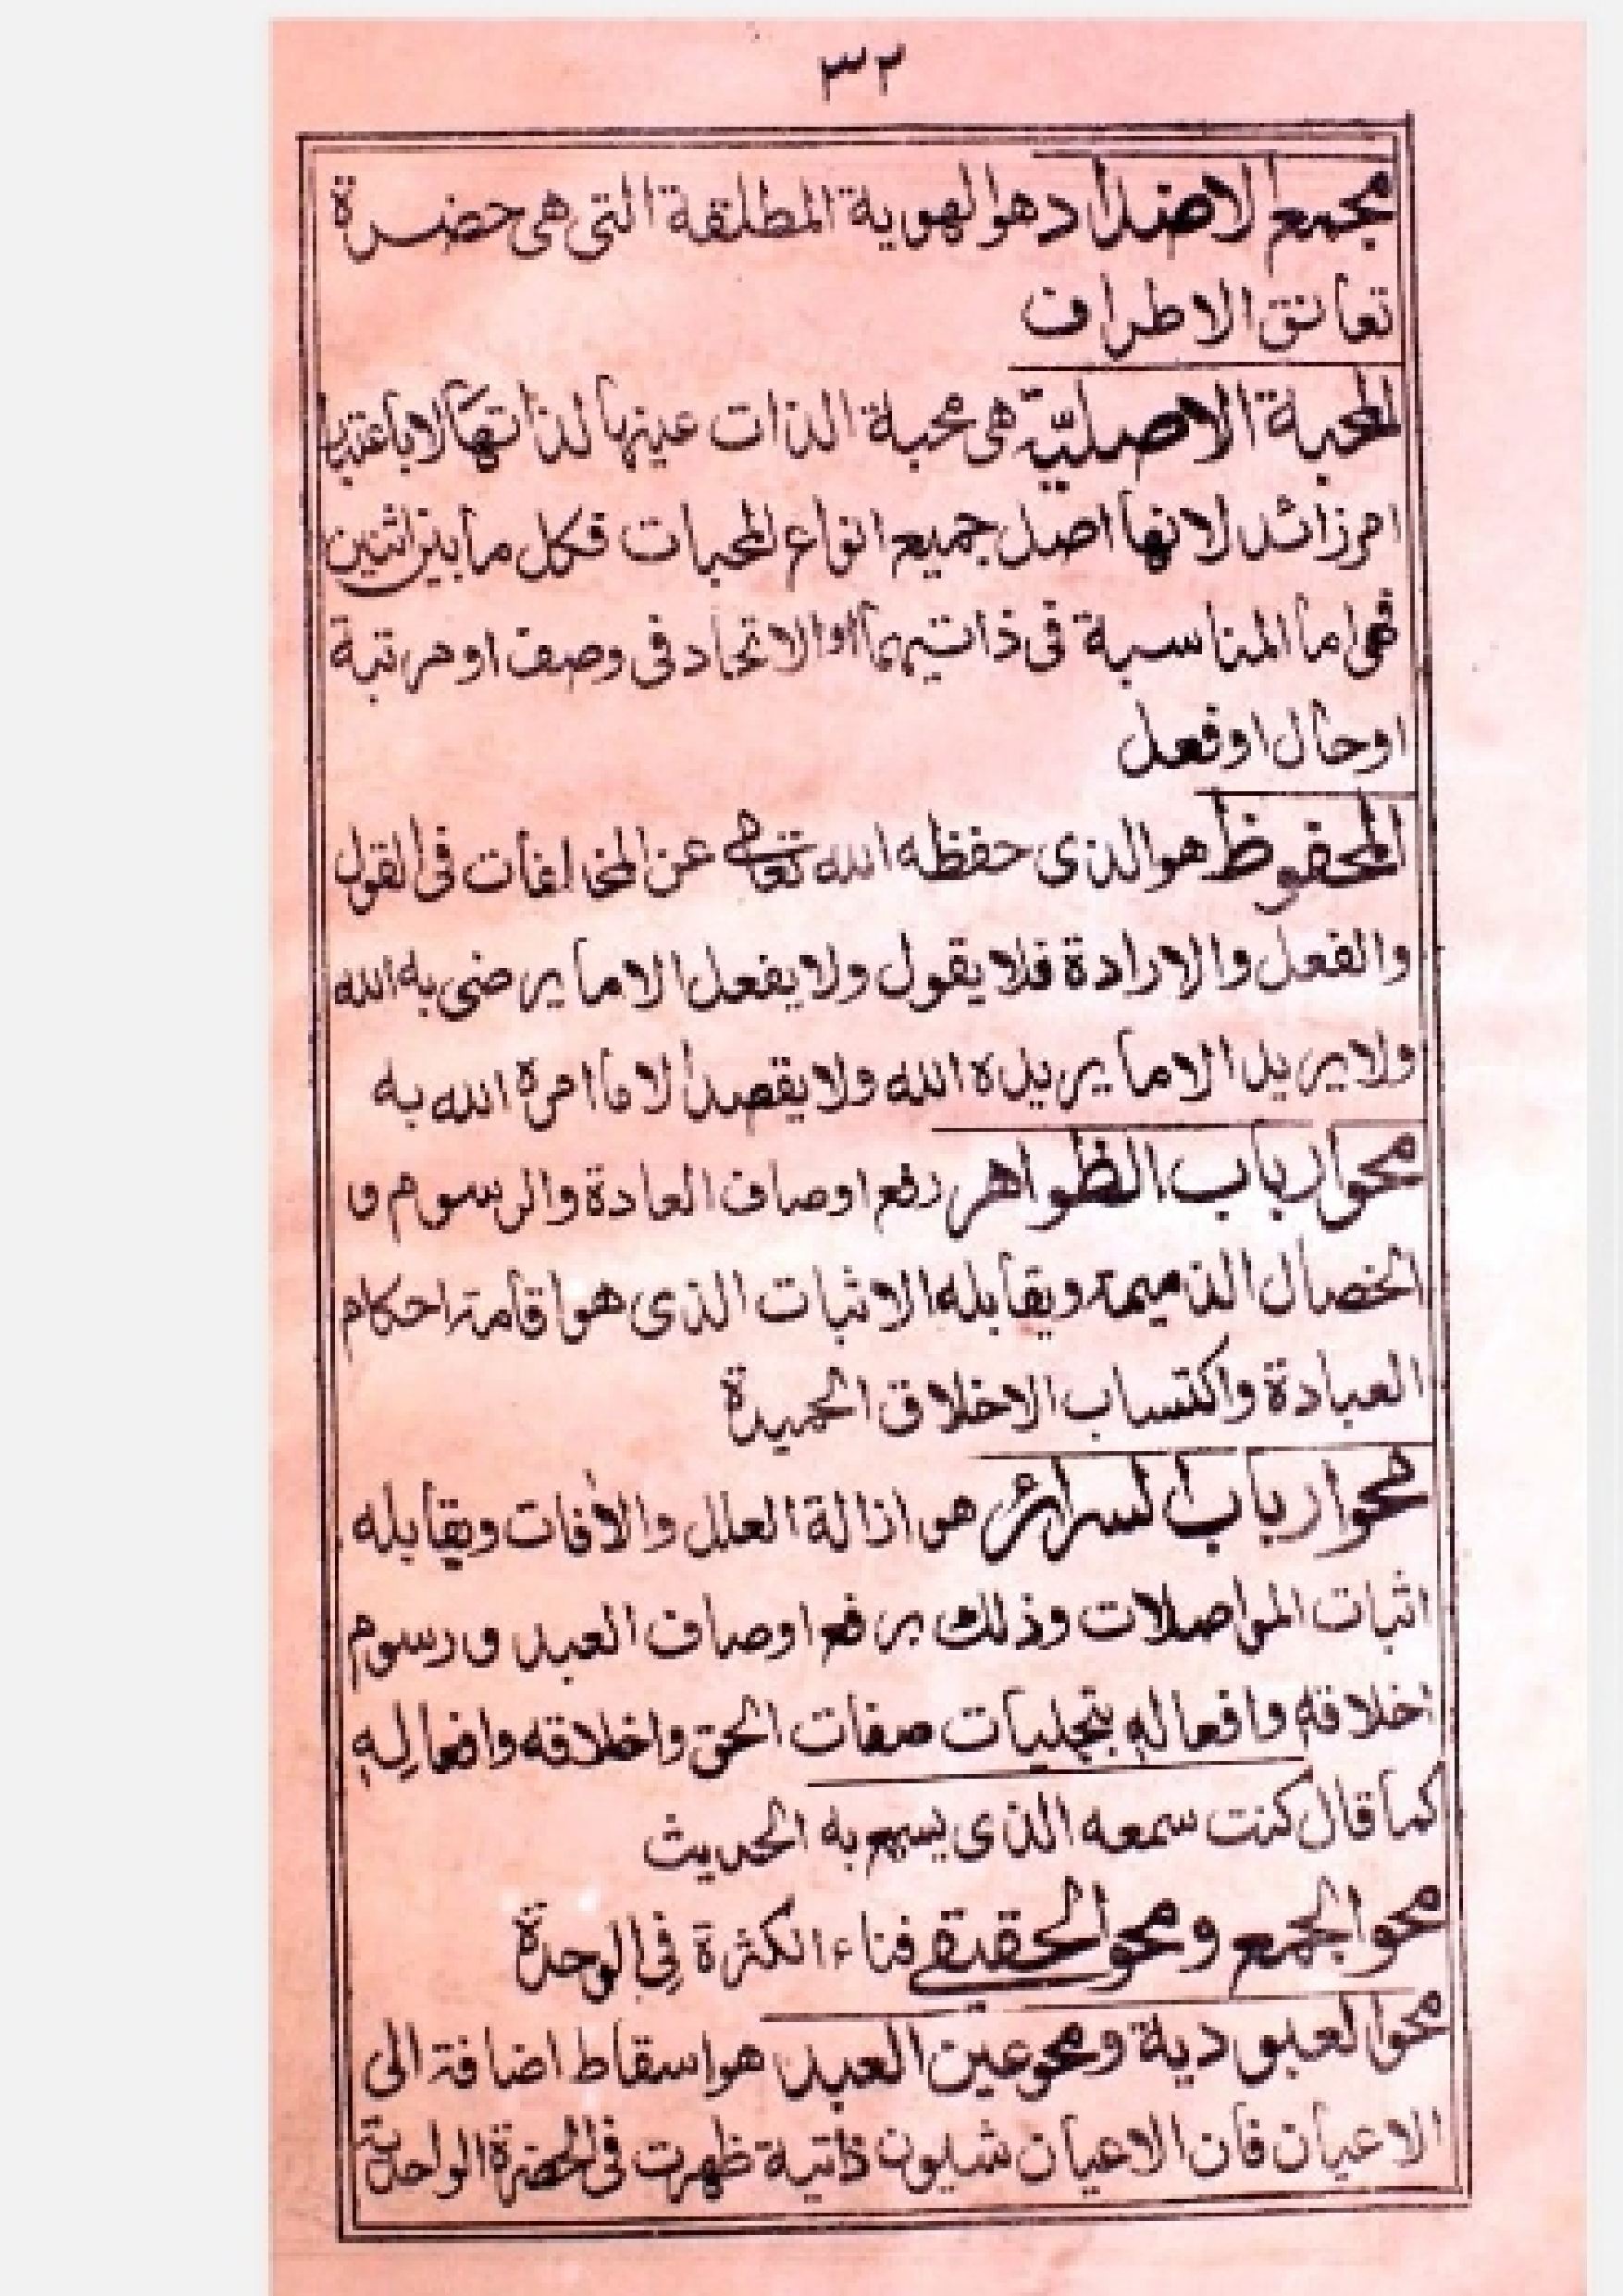 ٣٢
مجمع الاضداد هو الهوية المطلقة التى هى حضرة
تعانق الاطراف
المحبة الاصليّة هى محبة الذات عينها لذاتها لا باعتبار
امر زائد لانها اصل جميع انواع المحبات فكل ما بين اثنين
فهى اما المناسبة فى ذاتيهما او الاتحاد فى وصف او مرتبة
او حال او فعل
المحفوظ هو الذى حفظه الله تعالى عن المخالفات فى القول
والفعل والارادة فلا يقول ولا يفعل الا ما يرضى به الله
ولا يريد الا ما يريده الله ولا يقصد الا ما امره الله به
محو ارباب الظواهر رفع اوصاف العادة والرسوم و
الخصال الذميمة ويقابله الاثبات الذى هو اقامة احكام
العبادة واكتساب الاخلاق الحميدة
محو ارباب السرائر هو ازالة العلل والآفات ويقابله
اثبات المواصلات وذلك برفع اوصاف العبد و رسوم
اخلاقه وافعاله بتجليات صفات الحق واخلاقه وافعاله
كما قال كنت سمعه الذى يسمع به الحديث
محو الجمع و محو الحقيقى فناء الكثرة فى الوحدة
محو العبودية و محو عين العبد هو اسقاط اضافة الى
الاعيان فان الاعيان شيون ذاتية ظهرت فى الحضرة الواحدية